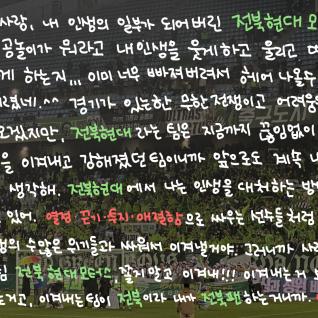 사랑, 내 인생의 일부가 되어버린 전북현대 모
공놀이가 뭐라고 내 인생을 웃게하고 울리고
게 하는지,,, 이미 너무 빠져버려서 헤어 나올수
렸네.^^ 경기가 있는한 무한전쟁이고 어려움
모겠지만, 전북현대 라는 팀은 지금까지 끊임없이
을 이겨내고 강해졌던 팀이니까 앞으로도 계속
생각해. 전북현대에서 나는 인생을 대처하는 방
있어. 열정·끈기·투지·애절함으로 싸우는 선수들처럼
생의 수많은 위기들과 싸워서 이겨낼거야. 그러니까 사
팀 전북현대모터스, 쫄지말고 이겨내!!! 이겨내는거
는거고, 이겨내는팀이 전북이라 내가 전북팬하는거니까.